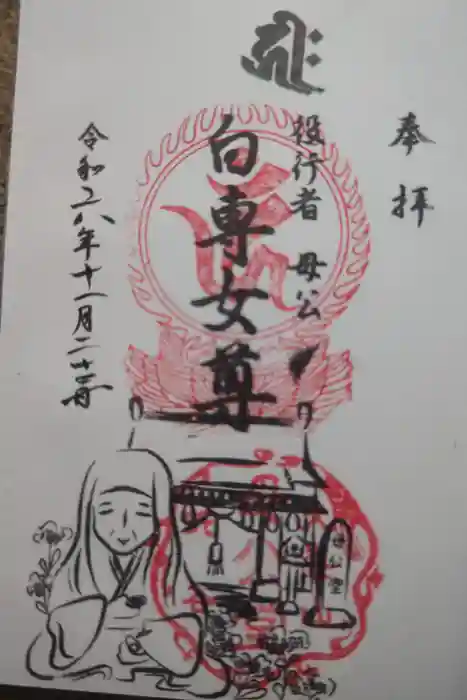 奉拝
役行者 母公
白専女尊
令和六年十一月
母公堂